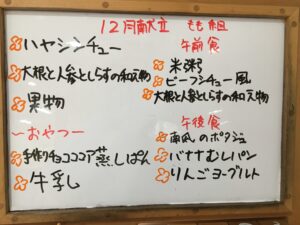 12月献立 もも組
ハヤシシチュー
大根と人参としらすの和え物
果物
〜おやつ〜
手作りチョコココア蒸しぱん
牛乳
午前食
米粥
ビーフシチュー風
大根と人参としらすの和え物
午後食
南瓜のポタージュ
バナナむしパン
りんごヨーグルト